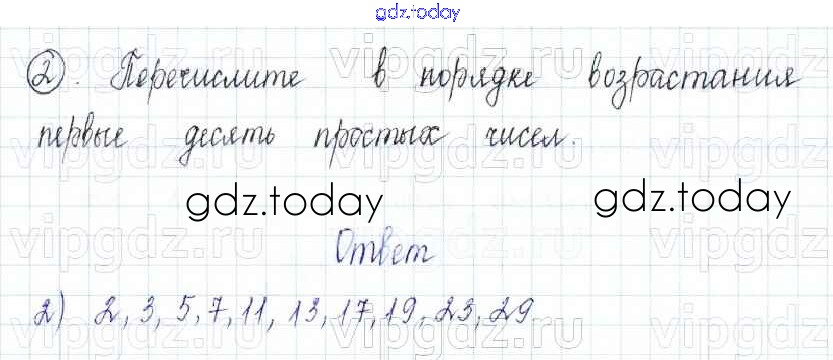 gdz.today
2. Перечислите в порядке возрастания
первые десять простых чисел.
gdz.today gdz.today
Ответ
2) 2, 3, 5, 7, 11, 13, 17, 19, 23, 29
vipgdz.ru